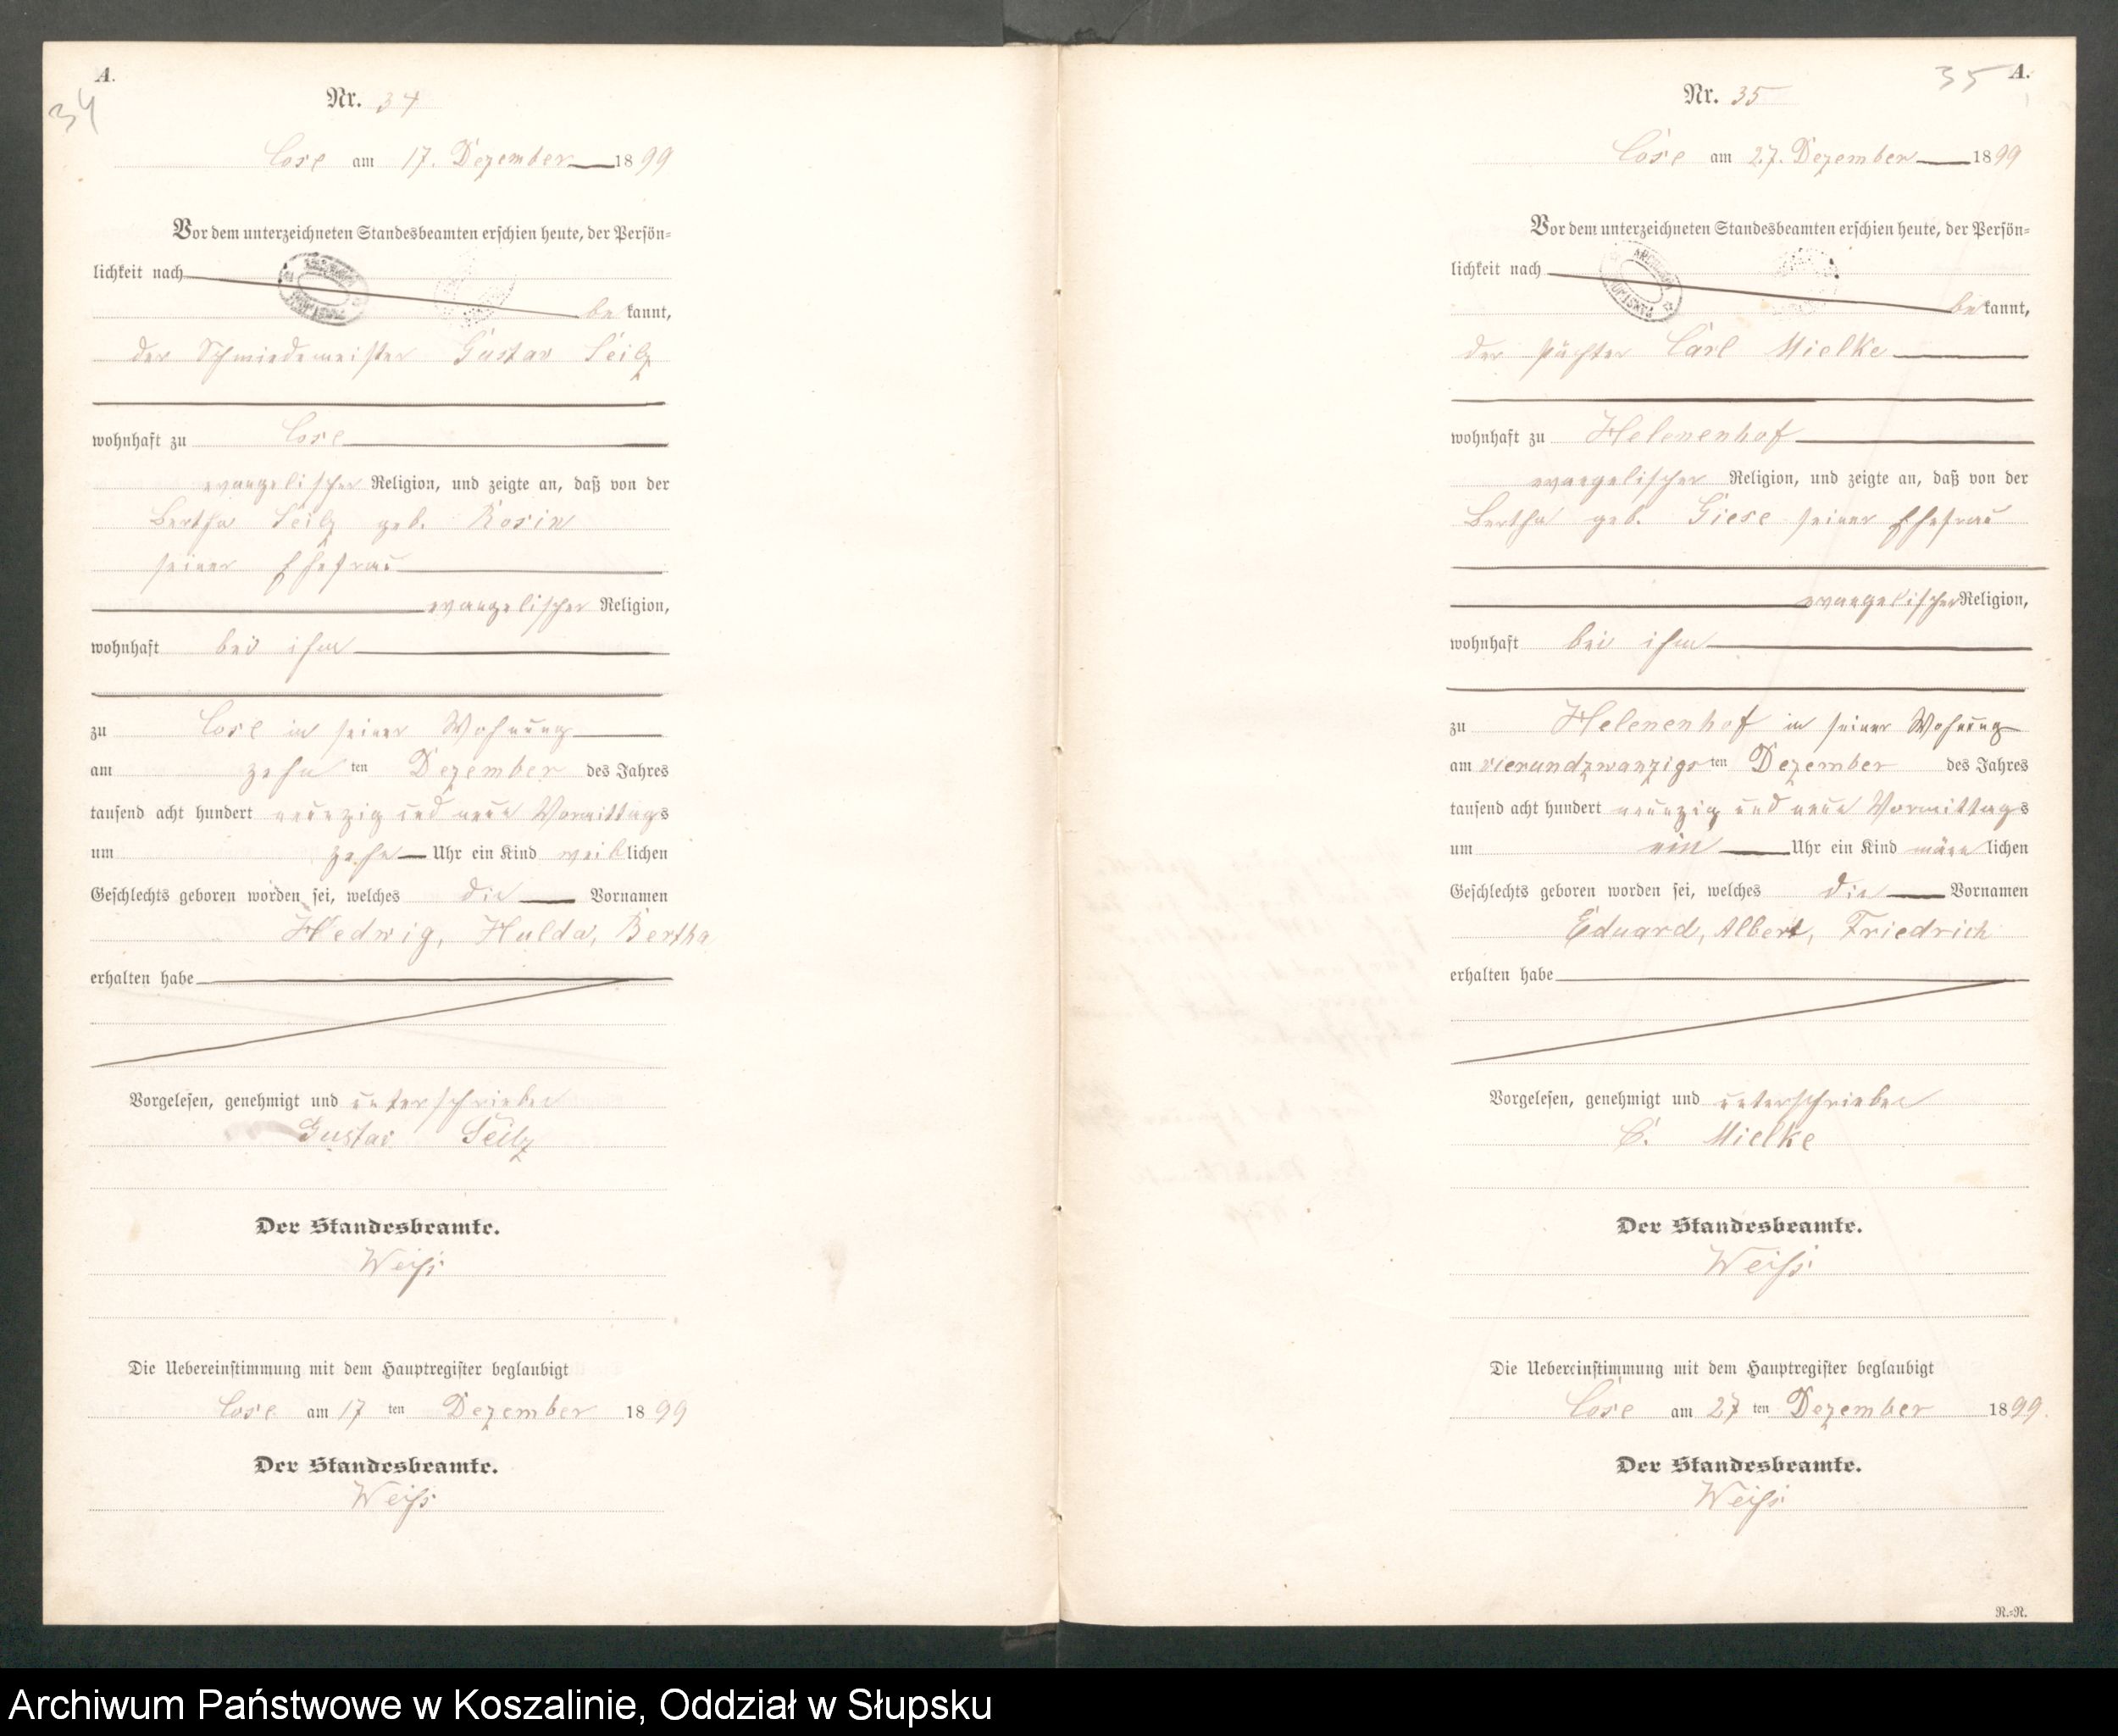 A.
34
Nr. 34
Cose am 17. Dezember 1899
Vor dem unterzeichneten Standesbeamten erschien heute, der Persön-
lichkeit nach
be kannt,
der Schmiedemeister Gustav Seilz
wohnhaft zu Cose
evangelischer Religion, und zeigte an, daß von der
Bertha Seilz geb. Rosin
seiner Ehefrau
evangelischer Religion,
wohnhaft bei ihm
zu Cose in seiner Wohnung
am zehn ten Dezember des Jahres
tausend acht hundert neunzig und neun Vormittags
um zehn Uhr ein Kind weiblichen
Geschlechts geboren worden sei, welches die Vornamen
Hedwig, Hulda, Bertha
erhalten habe
Vorgelesen, genehmigt und unterschrieben
Gustav Seilz
Der Standesbeamte.
Weiß
Die Uebereinstimmung mit dem Hauptregister beglaubigt
Cose am 17 ten Dezember 1899
Der Standesbeamte.
Weiß
35 A.
Nr. 35
Cose am 27. Dezember 1899
Vor dem unterzeichneten Standesbeamten erschien heute, der Persön-
lichkeit nach
be kannt,
der Pächter Carl Mielke
wohnhaft zu Helenenhof
evangelischer Religion, und zeigte an, daß von der
Bertha geb. Giese seiner Ehefrau
evangelischer Religion,
wohnhaft bei ihm
zu Helenenhof in seiner Wohnung
am vierundzwanzigs ten Dezember des Jahres
tausend acht hundert neunzig und neun Vormittags
um ein Uhr ein Kind männ lichen
Geschlechts geboren worden sei, welches die Vornamen
Eduard, Albert, Friedrich
erhalten habe
Vorgelesen, genehmigt und unterschrieben
C. Mielke
Der Standesbeamte.
Weiß
Die Uebereinstimmung mit dem Hauptregister beglaubigt
Cose am 27 ten Dezember 1899.
Der Standesbeamte.
Weiß
R.-R.
Archiwum Państwowe w Koszalinie, Oddział w Słupsku